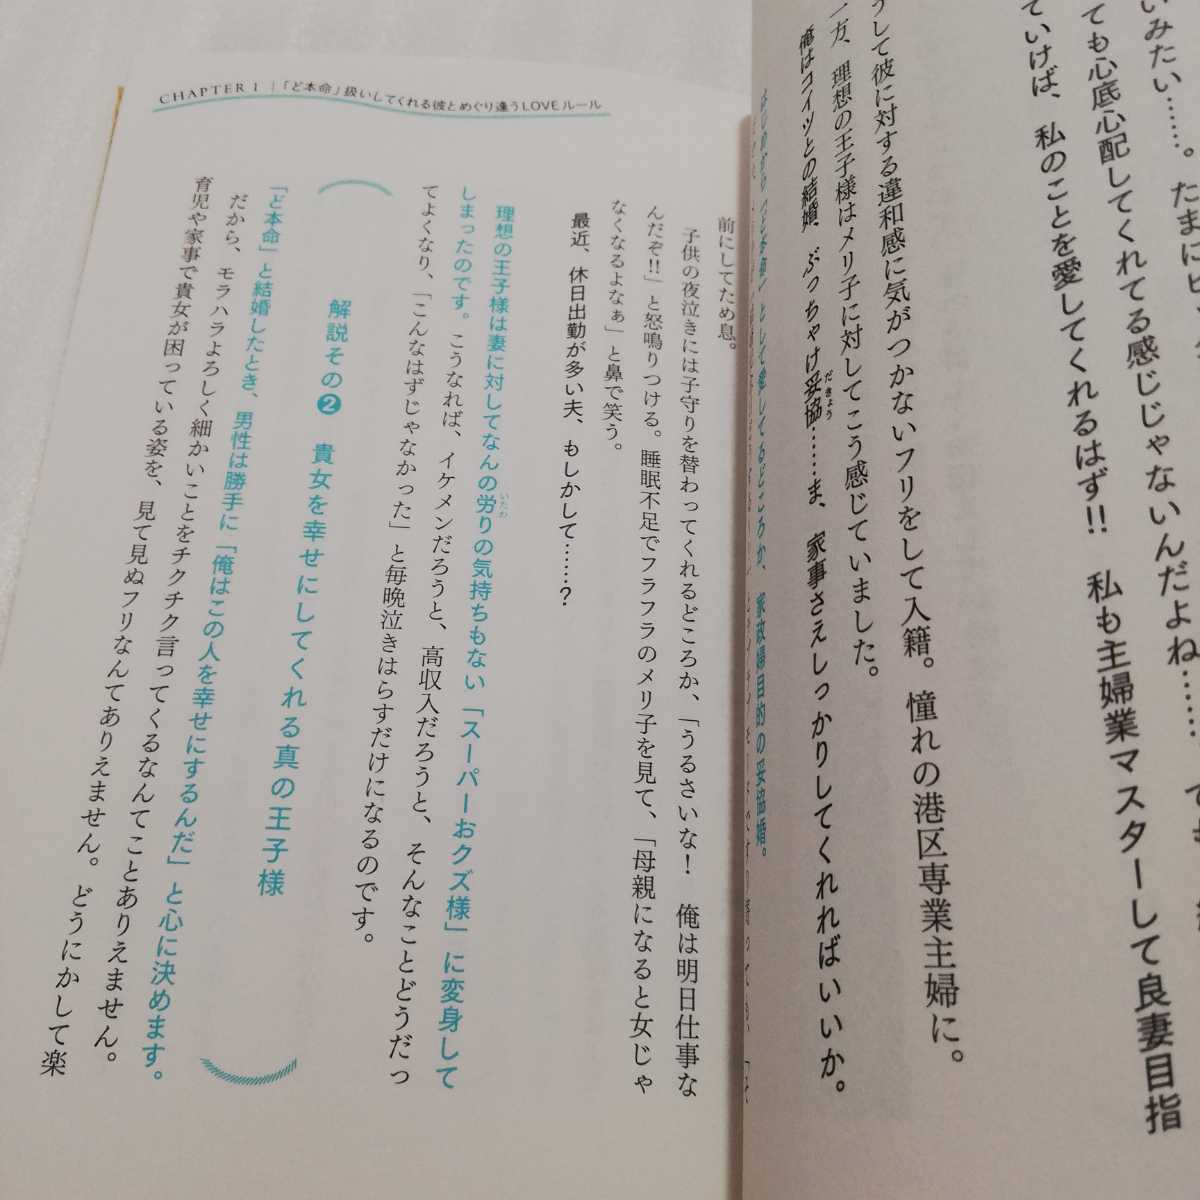 いみたい……。たまにビ
ても心底心配してくれてる感じじゃないんだよね……。でも
ていけば、私のことを愛してくれるはず!! 私も主婦業マスターして良妻目指
うして彼に対する違和感に気がつかないフリをして入籍。憧れの港区専業主婦に。
一方、理想の王子様はメリ子に対してこう感じていました。
俺はコイツとの結婚、ぶっちゃけ妥協……ま、家事さえしっかりしてくれればいいか。
だきょう
として愛してるどころか、家政婦目的の妥協婚。
CHAPTER 1 | 「ど本命」扱いしてくれる彼とめぐり逢うLOVEルール
前にしてため息。
子供の夜泣きには子守りを替わってくれるどころか、「うるさいな! 俺は明日仕事な
んだぞ!!」と怒鳴りつける。睡眠不足でフラフラのメリ子を見て、「母親になると女じゃ
なくなるよなぁ」と鼻で笑う。
最近、休日出勤が多い夫、もしかして……?
理想の王子様は妻に対してなんの労りの気持ちもない「スーパーおクズ様」に変身して
いたわ
しまったのです。こうなれば、イケメンだろうと、高収入だろうと、そんなことどうだっ
てよくなり、「こんなはずじゃなかった」と毎晩泣きはらすだけになるのです。
解説その❷ 貴女を幸せにしてくれる真の王子様
「ど本命」と結婚したとき、男性は勝手に「俺はこの人を幸せにするんだ」と心に決めます。
だから、モラハラよろしく細かいことをチクチク言ってくるなんてことありえません。
育児や家事で貴女が困っている姿を、見て見ぬフリなんてありえません。どうにかして楽